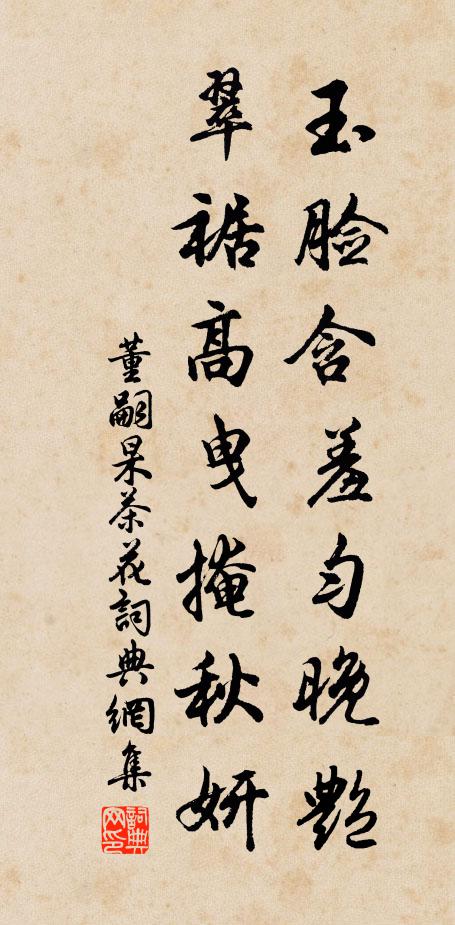 玉脸含羞匀晚艷
翠裾高曳掩秋妍
董嗣杲茶花詞典網集
詞典网印